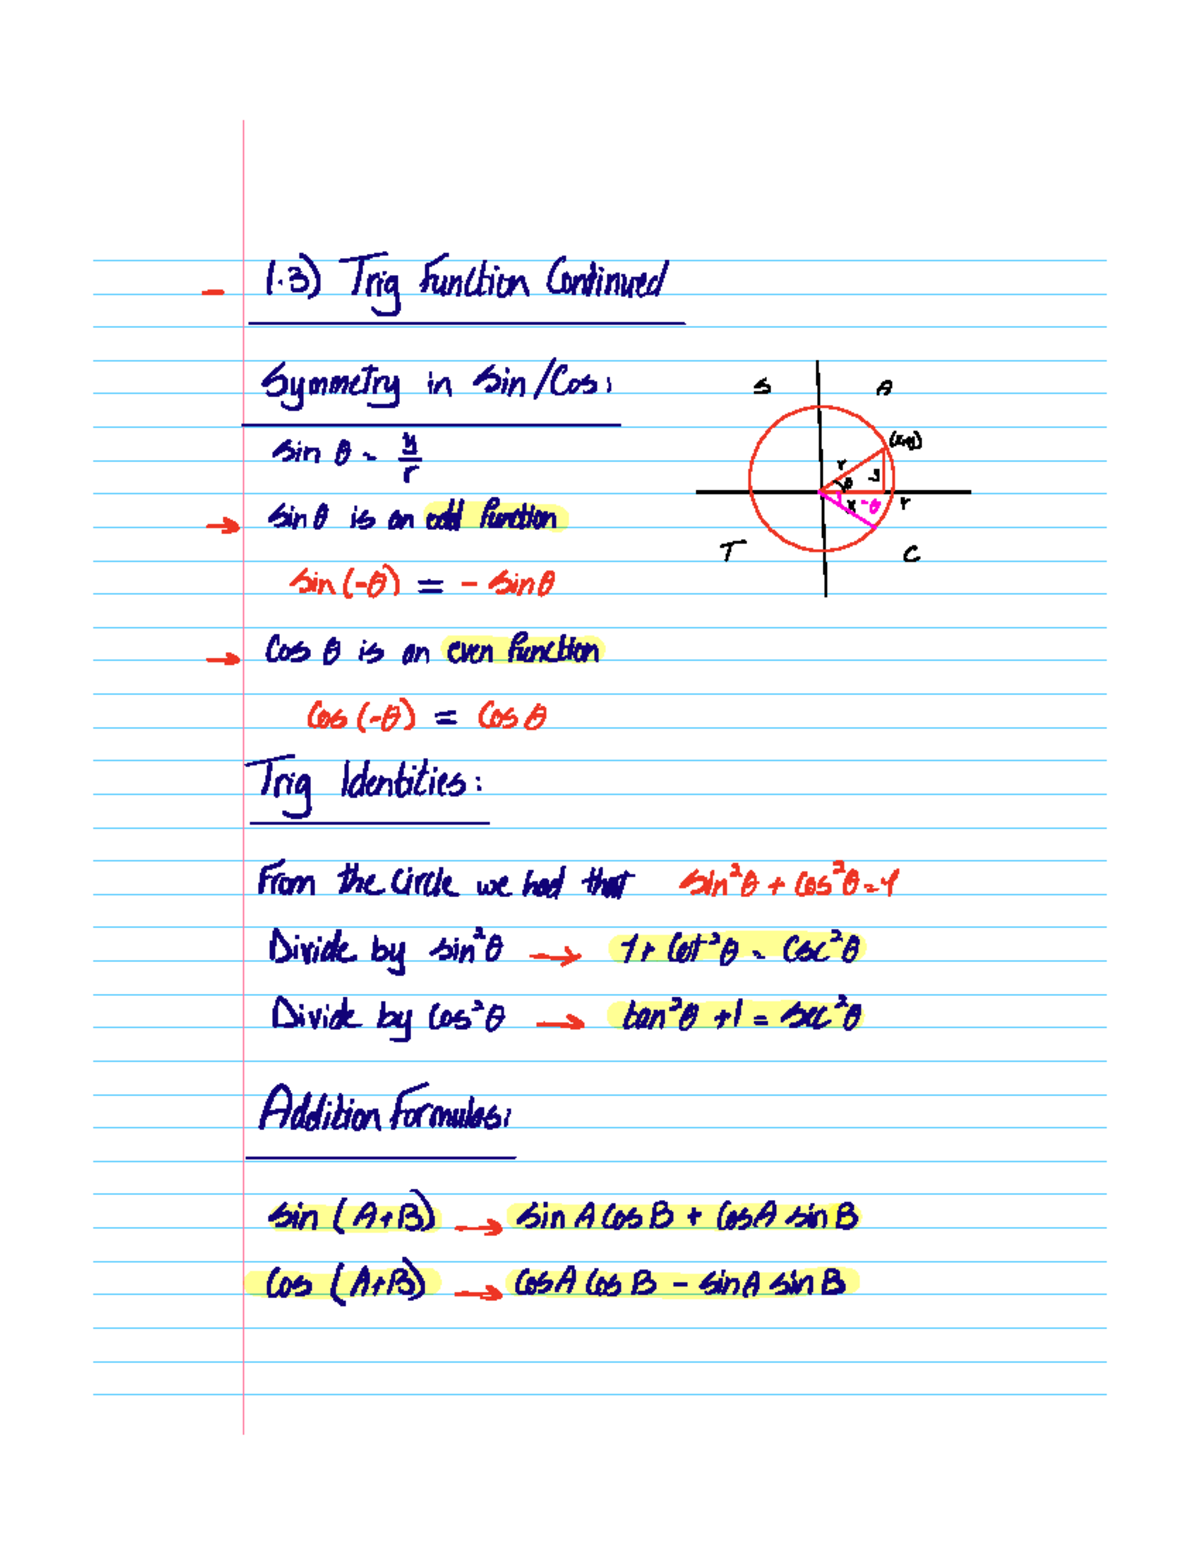 1.3) Trig Function Continued
Symmetry in Sin/Cos:
S A
sin θ = y/r
(x,y)
r θ y
x -θ r
sin θ is an odd function
T C
sin(-θ) = - sin θ
Cos θ is an even function
Cos(-θ) = Cos θ
Trig Identities:
From the Circle we had that sin²θ + Cos²θ = 1
Divide by sin²θ → 1 + Cot²θ = Csc²θ
Divide by Cos²θ → tan²θ + 1 = sec²θ
Addition Formulas:
sin (A+B) → sin A Cos B + Cos A sin B
Cos (A+B) → Cos A Cos B - sin A sin B